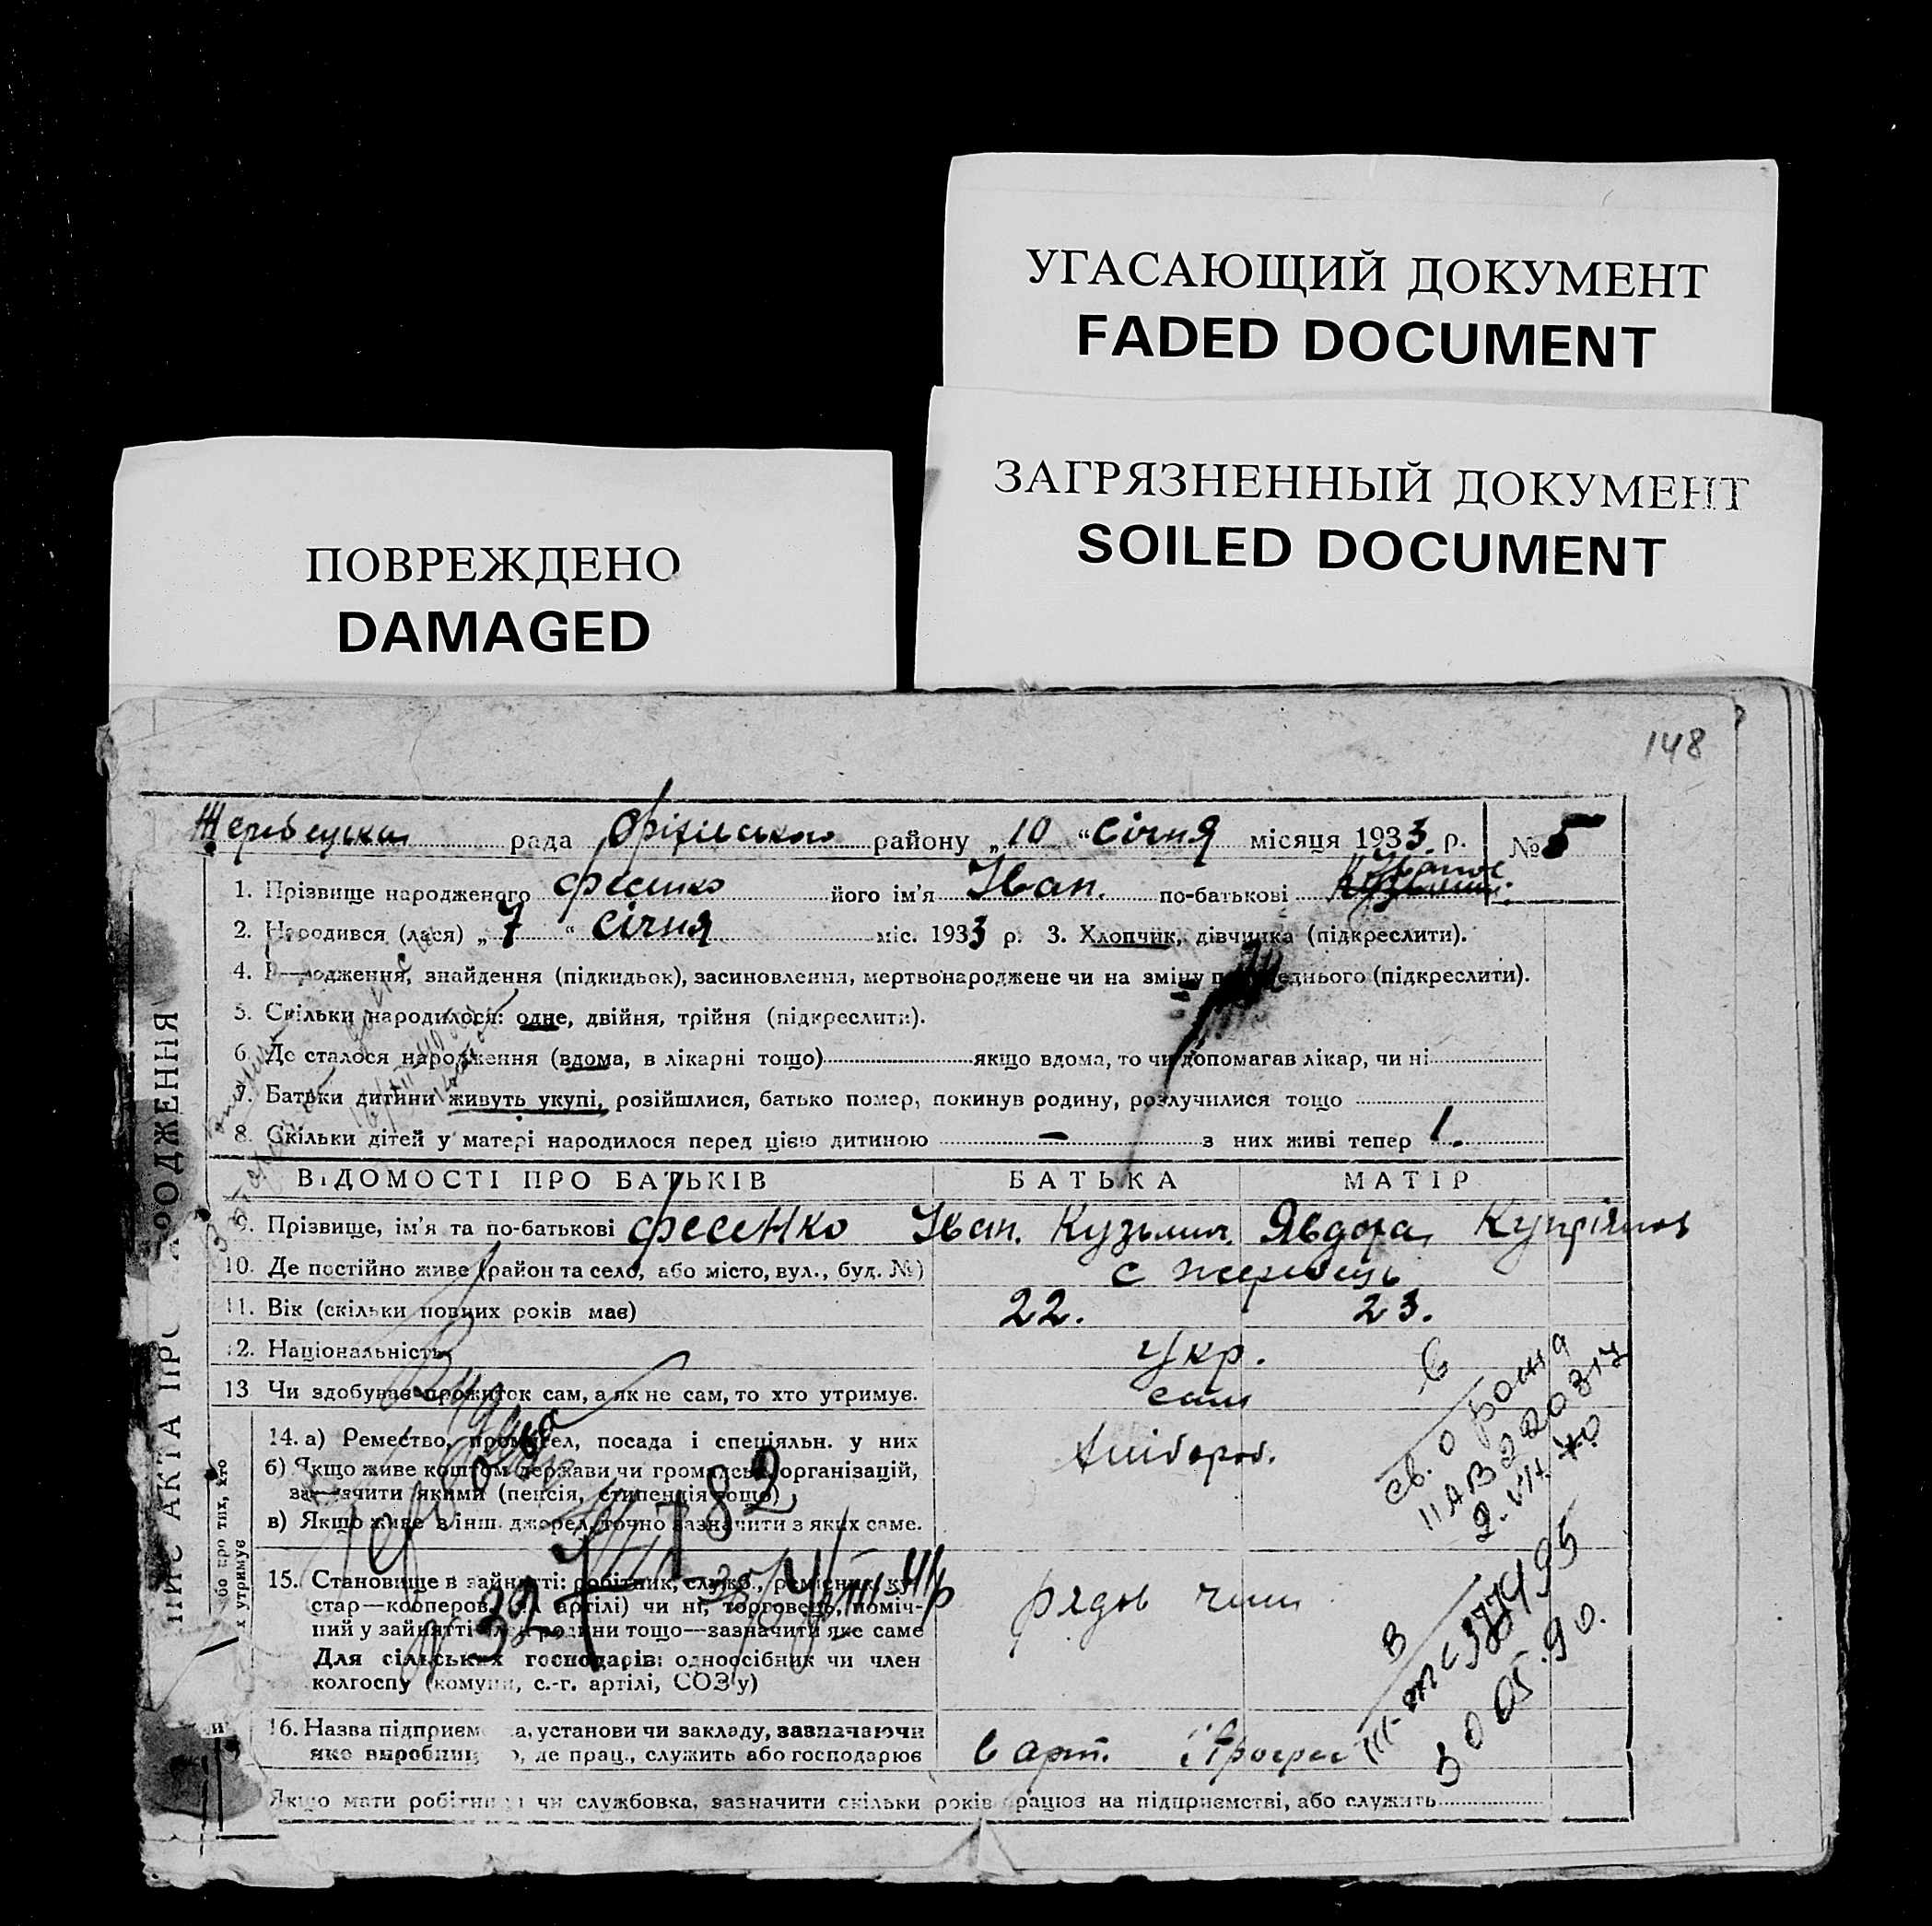 УГАСАЮЩИЙ ДОКУМЕНТ
FADED DOCUMENT
ЗАГРЯЗНЕННЫЙ ДОКУМЕНТ
SOILED DOCUMENT
ПОВРЕЖДЕНО
DAMAGED
148
Жеребецька рада Оріхівського району „10 “ січня місяця 1933. р. № 5
1. Прізвище народженого Фесенко його ім'я Іван. по-батькові Іванов
2. Народився (лася) „ 7 “ січня міс. 1933 р. 3. Хлопчик, дівчинка (підкреслити).
4. знайдення (підкидьок), засиновлення, мертвонароджене чи на зміну (підкреслити).
5. Скільки народилося: одне, двійня, трійня (підкреслити).
6. Де сталося народження (вдома, в лікарні тощо) якщо вдома, то чи допомагав лікар, чи ні
7. Батьки дитини живуть укупі, розійшлися, батько помер, покинув родину, розлучилися тощо
8. Скільки дітей у матері народилося перед цією дитиною — з них живі тепер 1.
ВІДОМОСТІ ПРО БАТЬКІВ БАТЬКА МАТІР
9. Прізвище, ім'я та по-батькові Фесенко Іван. Кузьмич. Явдоха Купріянов
10. Де постійно живе (район та село, або місто, вул., буд. №) с Жеребець
11. Вік (скільки повних років має) 22. 23.
12. Національність Укр.
13 Чи здобуває прожиток сам, а як не сам, то хто утримує. сам
14. а) Ремество, промисел, посада і спеціяльн. у них хлібороб.
б) Якщо живе коштом держави чи громадськ. організацій,
зазначити якими (пенсія, стипендія тощо)
в) Якщо живе з інш. джерел, точно зазначити з яких саме.
782
327
15. Становище в зайнятті: робітник, служб., ремісник, ку-
стар—кооперов. артілі) чи ні, торговець, поміч-
ний у зайнятті родини тощо—зазначити яке саме
Для сільських господарів: одноосібник чи член
колгоспу (комуни, с.-г. артілі, СОЗ'у)
рядов член
16. Назва підприєм а, установи чи закладу, зазначаючи
яке виробниц о, де прац., служить або господарює
в арт. Прогрес
Якщо мати робітниця чи службовка, зазначити скільки років працює на підприємстві, або служить
30 05.90.